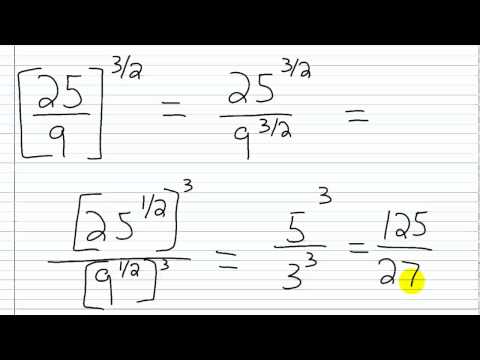 [25/9]^{3/2} = 25^{3/2}/9^{3/2} =
[25^{1/2}]^3/[9^{1/2}]^3 = 5^3/3^3 = 125/27